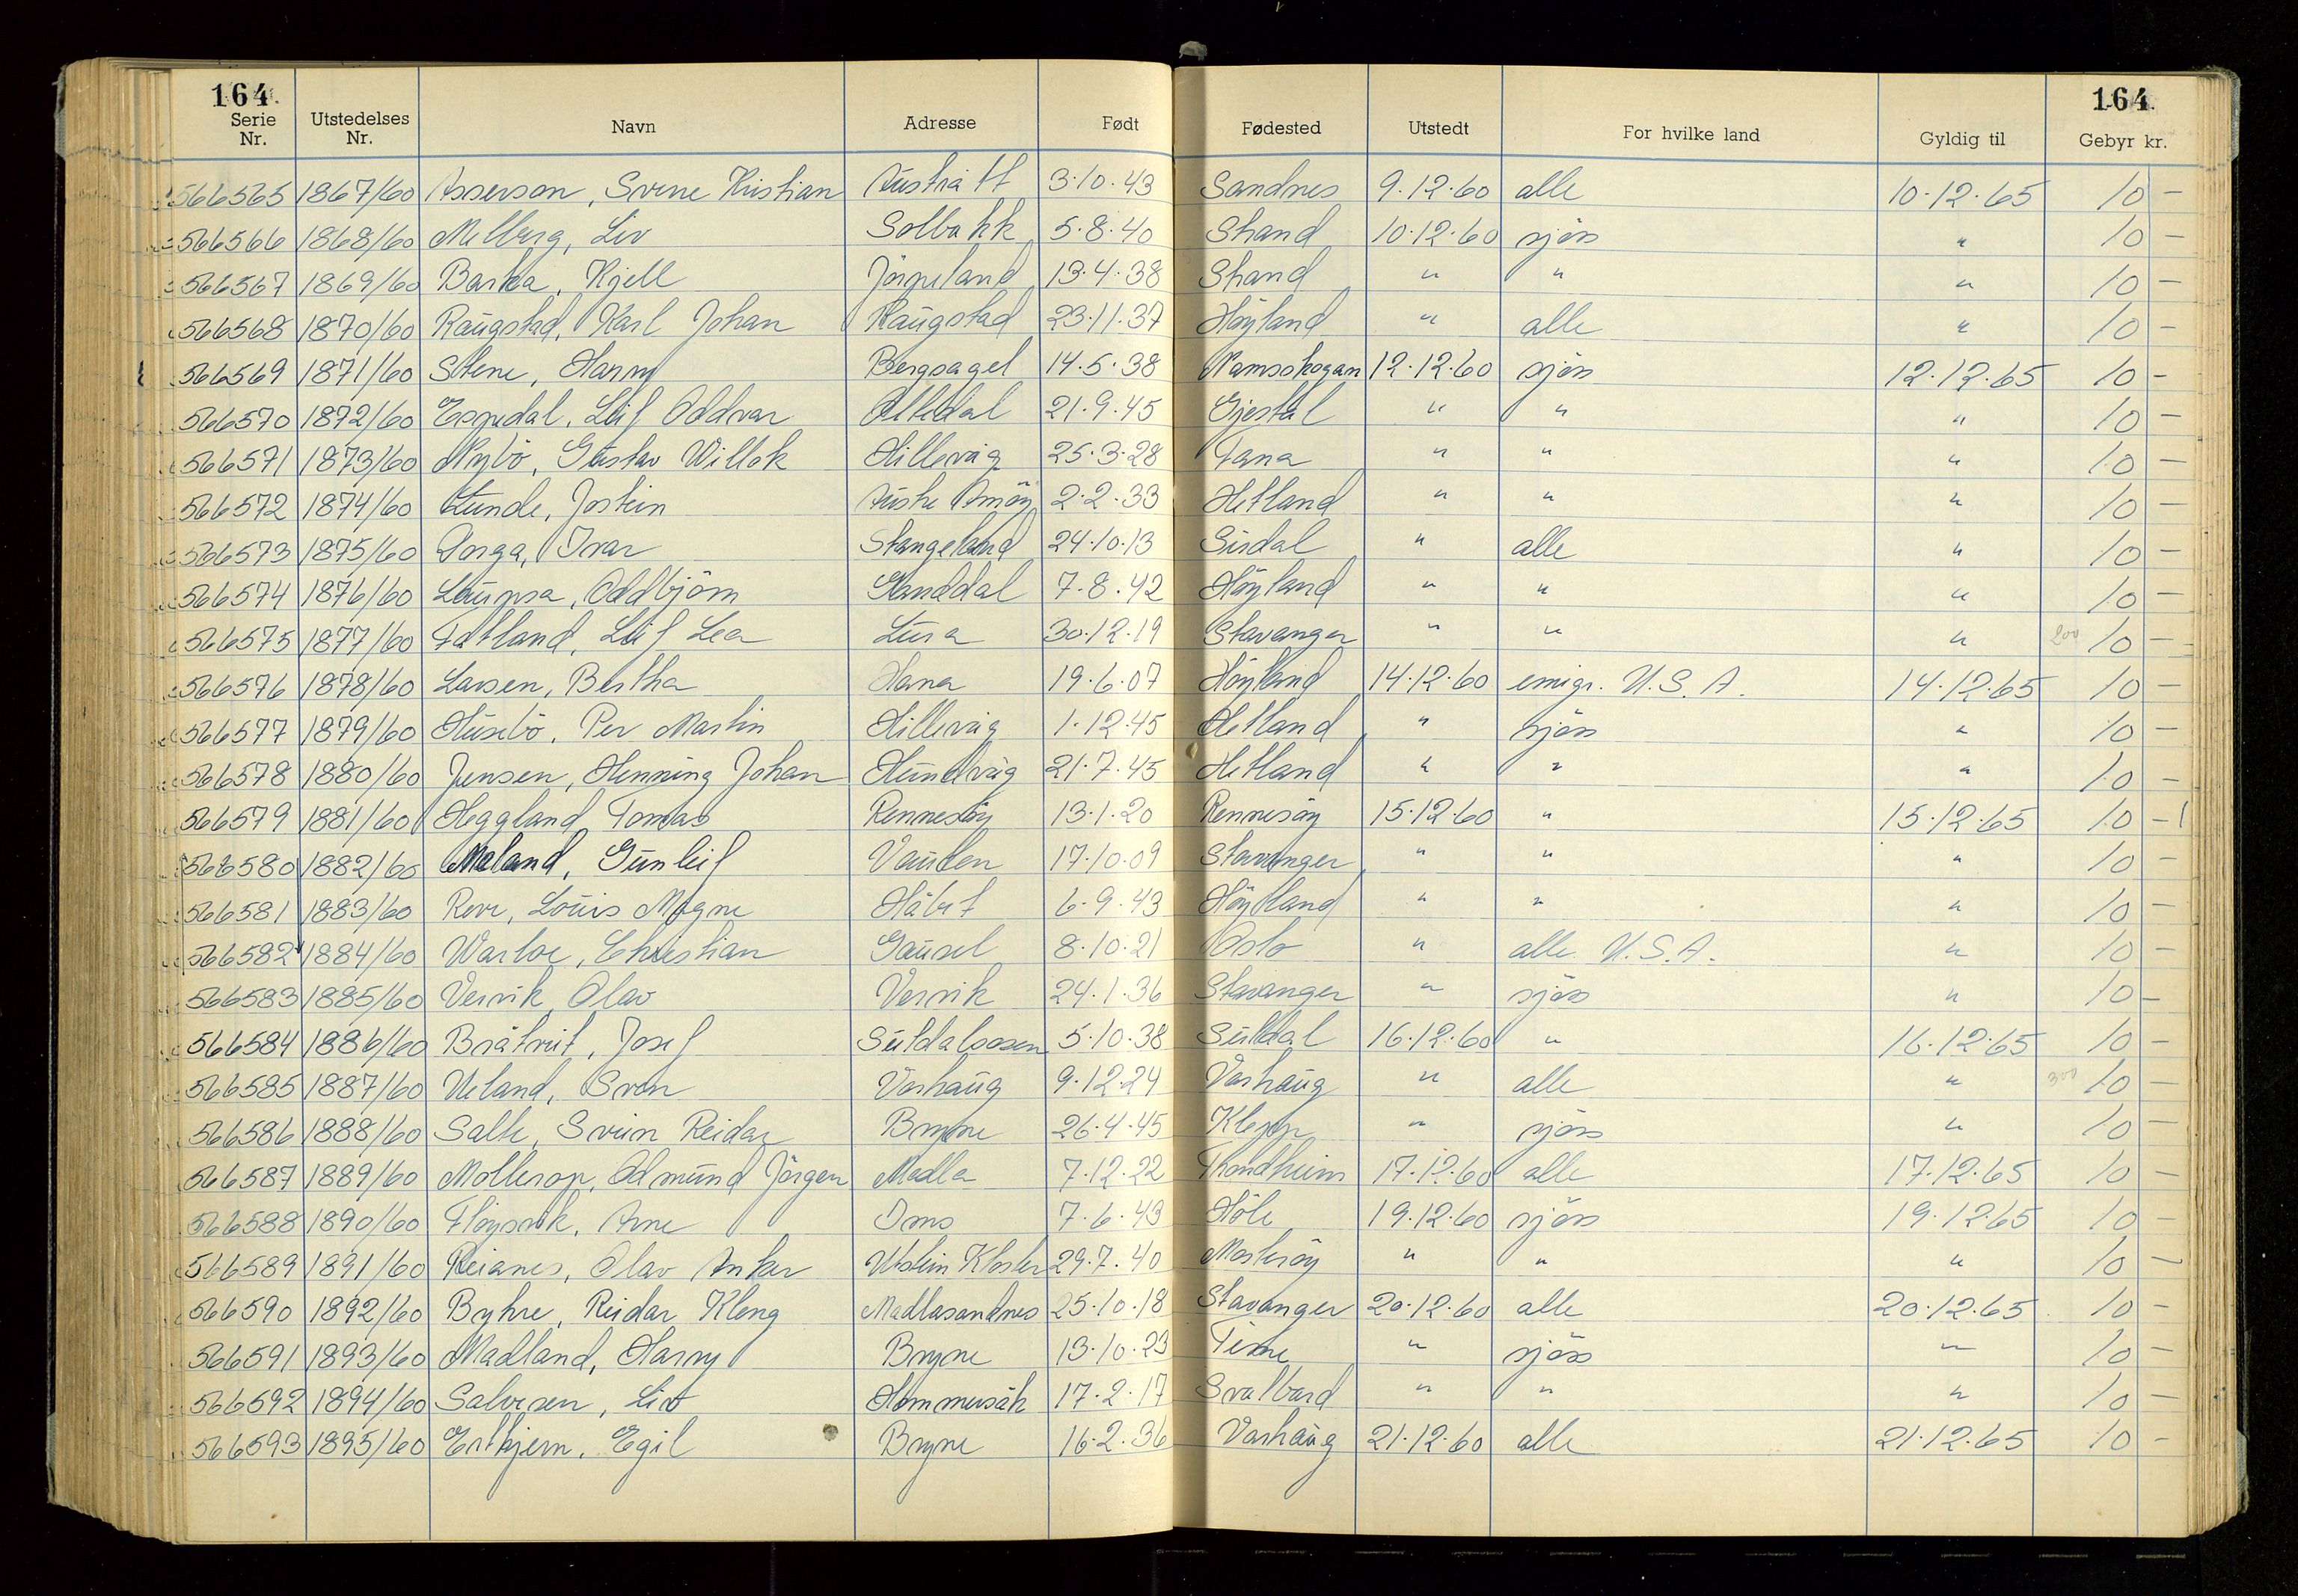 164. 164.
Serie Nr. Utstedelses Nr. Navn Adresse Født Fødested Utstedt For hvilke land Gyldig til Gebyr kr.
566565 1867/60 Asserson, Svene Kristian Austrått 3.10.43 Sandnes 9.12.60 alle 10.12.65 10 –
566566 1868/60 Melberg, Liv Solbakk 5.8.40 Strand 10.12.60 sjøs " 10 –
566567 1869/60 Barka, Kjell Jörpeland 13.4.38 Strand " " " 10 –
566568 1870/60 Raugstad, Karl Johan Raugstad 23.11.37 Höyland " alle " 10 –
566569 1871/60 Stene, Harry Bergsagel 14.5.38 Namsskogan 12.12.60 sjøs 12.12.65 10 –
566570 1872/60 Espedal, Leif Oddvar Oltedal 21.9.45 Gjestal " " " 10 –
566571 1873/60 Nybö, Gustav Willok Hillevåg 25.3.28 Fana " " " 10 –
566572 1874/60 Lunde, Jostein Austre Åmöy 2.2.33 Hetland " " " 10 –
566573 1875/60 Dorga, Ivar Stangeland 24.10.13 Sirdal " alle " 10 –
566574 1876/60 Laupsa, Oddbjörn Ganddal 7.8.42 Höyland " " " 10 –
566575 1877/60 Fatland, Leif Lea Lura 30.12.19 Stavanger " " " 200 10 –
566576 1878/60 Larsen, Bertha Hana 19.6.07 Höyland 14.12.60 emigr. U.S.A. 14.12.65 10 –
566577 1879/60 Husebö, Per Martin Hillevåg 1.12.45 Hetland " sjøs " 10 –
566578 1880/60 Jensen, Henning Johan Hundvåg 21.7.45 Hetland " " " 10 –
566579 1881/60 Heggland, Tomas Rennesöy 13.1.20 Rennesöy 15.12.60 " 15.12.65 10 –
566580 1882/60 Meland, Gunleif Vaulen 17.10.09 Stavanger " " " 10 –
566581 1883/60 Reve, Louis Magne Håbet 6.9.43 Höyland " " " 10 –
566582 1884/60 Warloe, Christian Gausel 8.10.21 Oslo " alle U.S.A. " 10 –
566583 1885/60 Vervik, Olav Vervik 24.1.36 Stavanger " sjøs " 10 –
566584 1886/60 Bråtveit, Josef Suldalsosen 5.10.38 Suldal 16.12.60 " 16.12.65 10 –
566585 1887/60 Ueland, Sven Varhaug 9.12.24 Varhaug " alle " 300 10 –
566586 1888/60 Salte, Svein Reidar Bryne 26.4.45 Klepp " sjøs " 10 –
566587 1889/60 Mollerop, Odmund Jörgen Madla 7.12.22 Trondheim 17.12.60 alle 17.12.65 10 –
566588 1890/60 Flöysvik, Arne Ims 7.6.43 Höle 19.12.60 sjøs 19.12.65 10 –
566589 1891/60 Reianes, Olav Anker Utstein Kloster 29.7.40 Mosteröy " " " 10 –
566590 1892/60 Byhre, Reidar Kleng Madlasandnes 25.10.18 Stavanger 20.12.60 alle 20.12.65 10 –
566591 1893/60 Madland, Harry Bryne 13.10.23 Time " sjøs " 10 –
566592 1894/60 Salvesen, Liv Hommersåk 17.2.17 Svalbard " " " 10 –
566593 1895/60 Ertkjern, Egil Bryne 16.2.36 Varhaug 21.12.60 alle 21.12.65 10 –